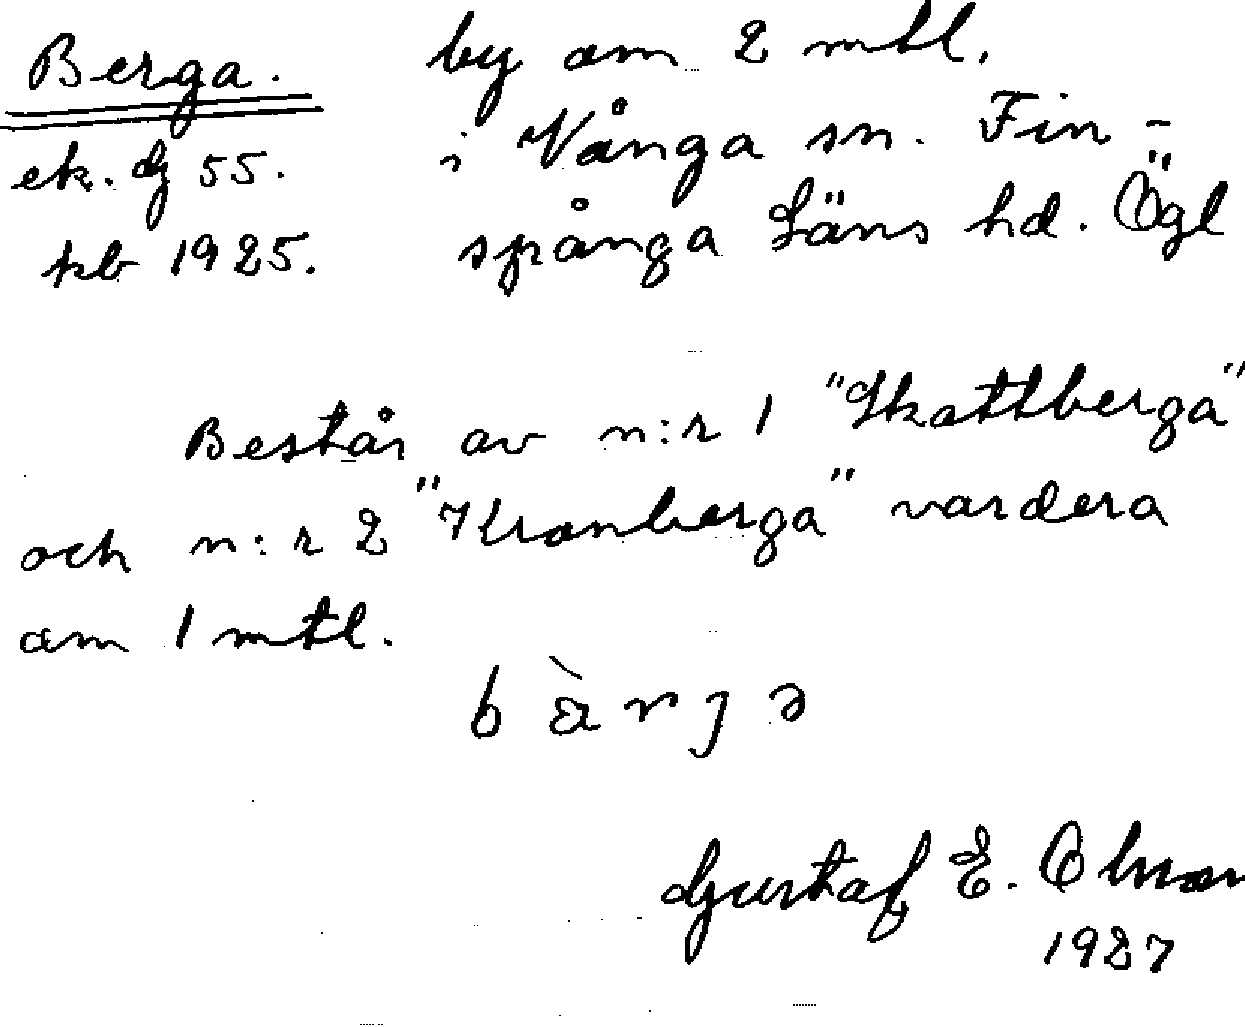 Berga.
ek. dj 55.
kb 1925.
by om 2 mtl.
i Vånga sn. Fin-
spånga Läns hd. Ögl
Består av n:r 1 "Skattberga"
och n:r 2 "Kronberga" vardera
om 1 mtl.
b æ̀ r j ə
Gustaf E. Olson
1927